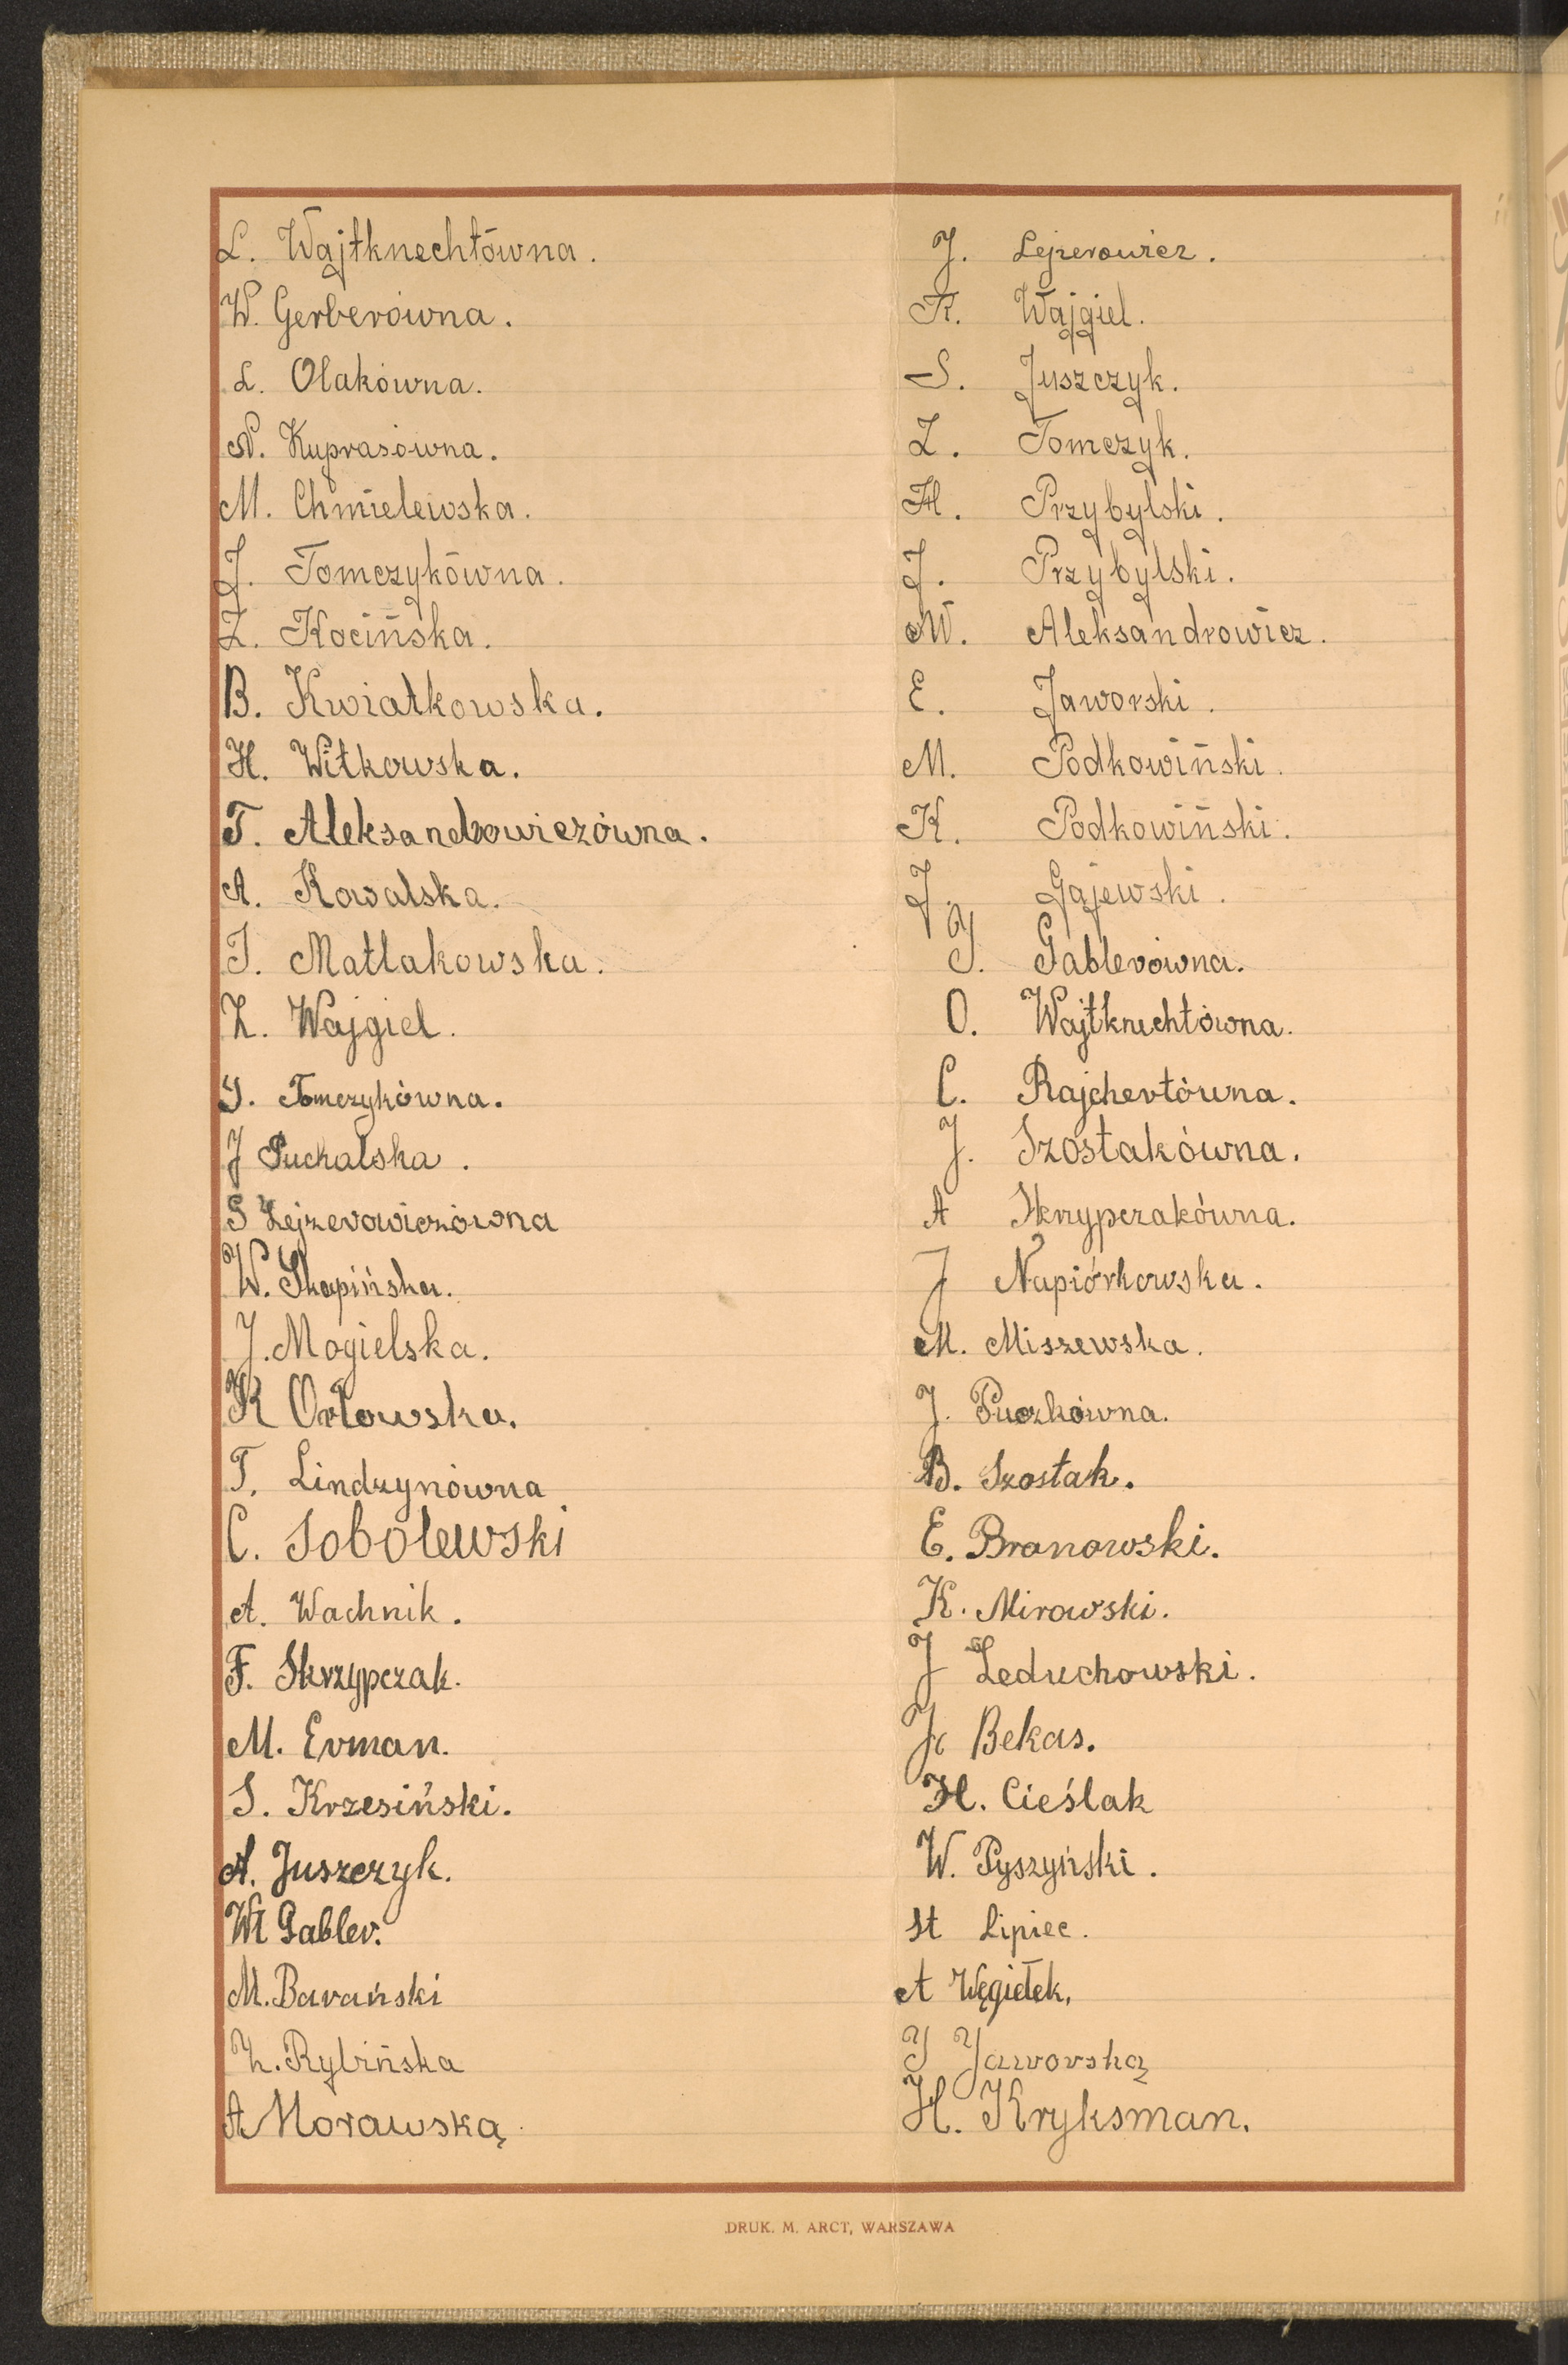 L. Wajtknechtówna.
W. Gerberówna.
L. Olakówna.
N. Kuprasówna.
M. Chmielewska.
J. Tomczykówna.
Z. Kocińska.
B. Kwiatkowska.
H. Witkowska.
T. Aleksandrowiczówna.
A. Kowalska.
I. Matlakowska.
Z. Wajgiel.
J. Tomczykówna.
J Puchalska.
S Lejzerowiczówna
W. Skapińska.
J. Mogielska.
K Orłowska.
T. Lindzynówna
C. Sobolewski
A. Wachnik.
F. Skrzypczak.
M. Erman.
S. Krzesiński.
A. Juszczyk.
Wł Gabler.
M. Barański
Z. Rybińska
A Morawska
J. Lejzerowicz.
K. Wajgiel.
S. Juszczyk.
Z. Tomczyk.
H. Przybylski.
J. Przybylski.
W. Aleksandrowicz.
E. Jaworski.
M. Podkowiński.
K. Podkowiński.
J. Gajewski.
J. Gablerówna.
O. Wajtknechtówna.
C. Rajchertówna.
J. Szostakówna.
A Skrzypczakówna.
J Napiórkowska.
M. Miszewska.
J. Puczkówna.
B. Szostak.
E. Branowski.
K. Mirowski.
J Leduchowski.
J. Bekas.
H. Cieślak
W. Pyszyński.
St Lipiec.
A Węgiełek.
J Jaworska
H. Kryksman.
DRUK. M. ARCT, WARSZAWA